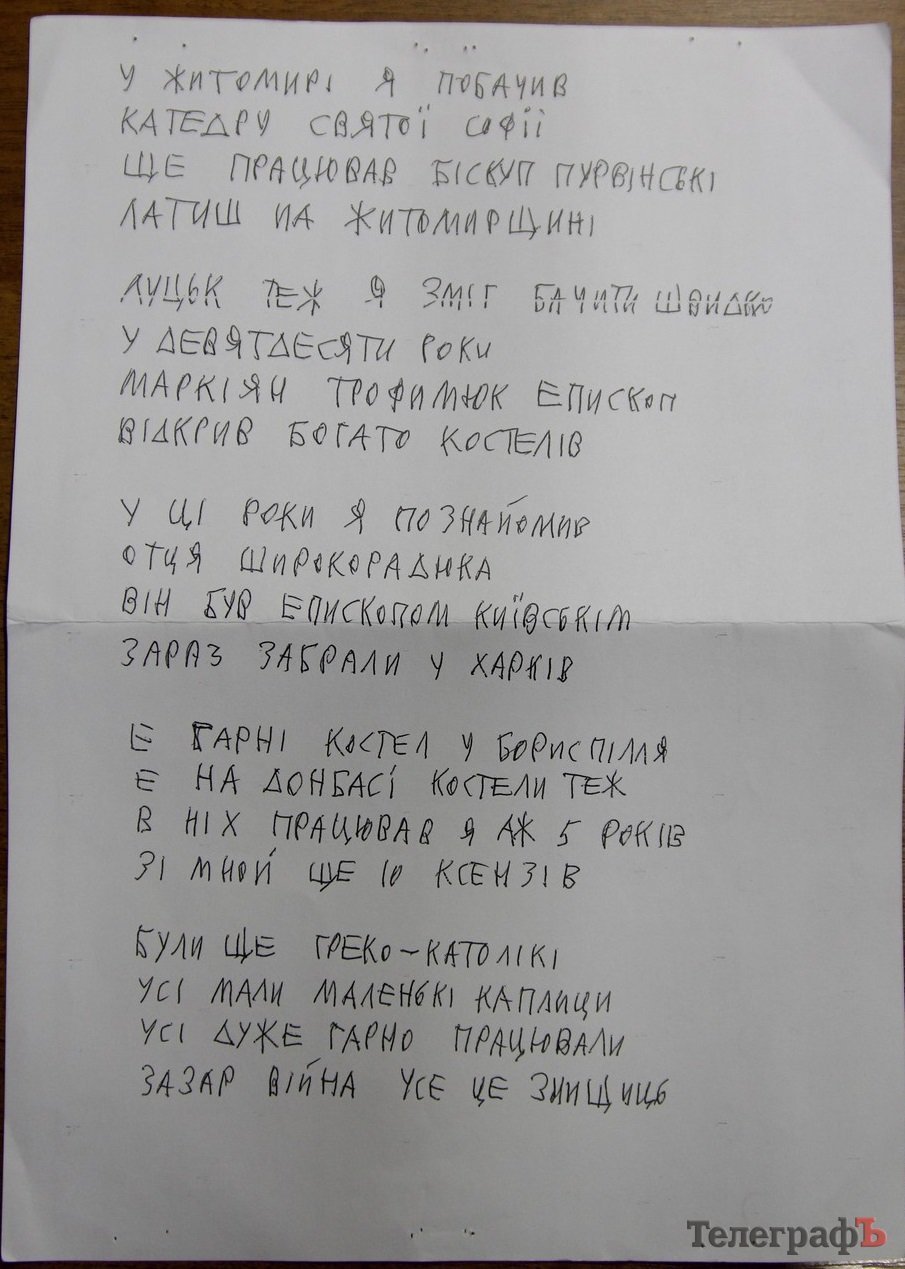 У ЖИТОМИРІ Я ПОБАЧИВ
КАТЕДРУ СВЯТОЇ СОФІЇ
ЩЕ ПРАЦЮВАВ БІСКУП ПУРВІНСЬКІ
ЛАТИШ НА ЖИТОМИРЩИНІ
ЛУЦЬК ТЕЖ Я ЗМІГ БАЧИТИ ШВИДКО
У ДЕВЯТДЕСЯТИ РОКИ
МАРКІЯН ТРОФИМЮК ЕПИСКОП
ВІДКРИВ БОГАТО КОСТЕЛІВ
У ЦІ РОКИ Я ПОЗНАЙОМИВ
ОТЦЯ ШИРОКОРАДЮКА
ВІН БУВ ЕПИСКОПОМ КИЇВСЬКІМ
ЗАРАЗ ЗАБРАЛИ У ХАРКІВ
Е ГАРНІ КОСТЕЛ У БОРИСПІЛЛЯ
Е НА ДОНБАСІ КОСТЕЛИ ТЕЖ
В НІХ ПРАЦЮВАВ Я АЖ 5 РОКІВ
ЗІ МНОЙ ЩЕ 10 КСЕНЗІВ
БУЛИ ЩЕ ГРЕКО-КАТОЛІКІ
УСІ МАЛИ МАЛЕНЬКІ КАПЛИЦИ
УСІ ДУЖЕ ГАРНО ПРАЦЮВАЛИ
ЗАЗАР ВІЙНА УСЕ ЦЕ ЗНИЩИЦЬ
ТелеграфЪ